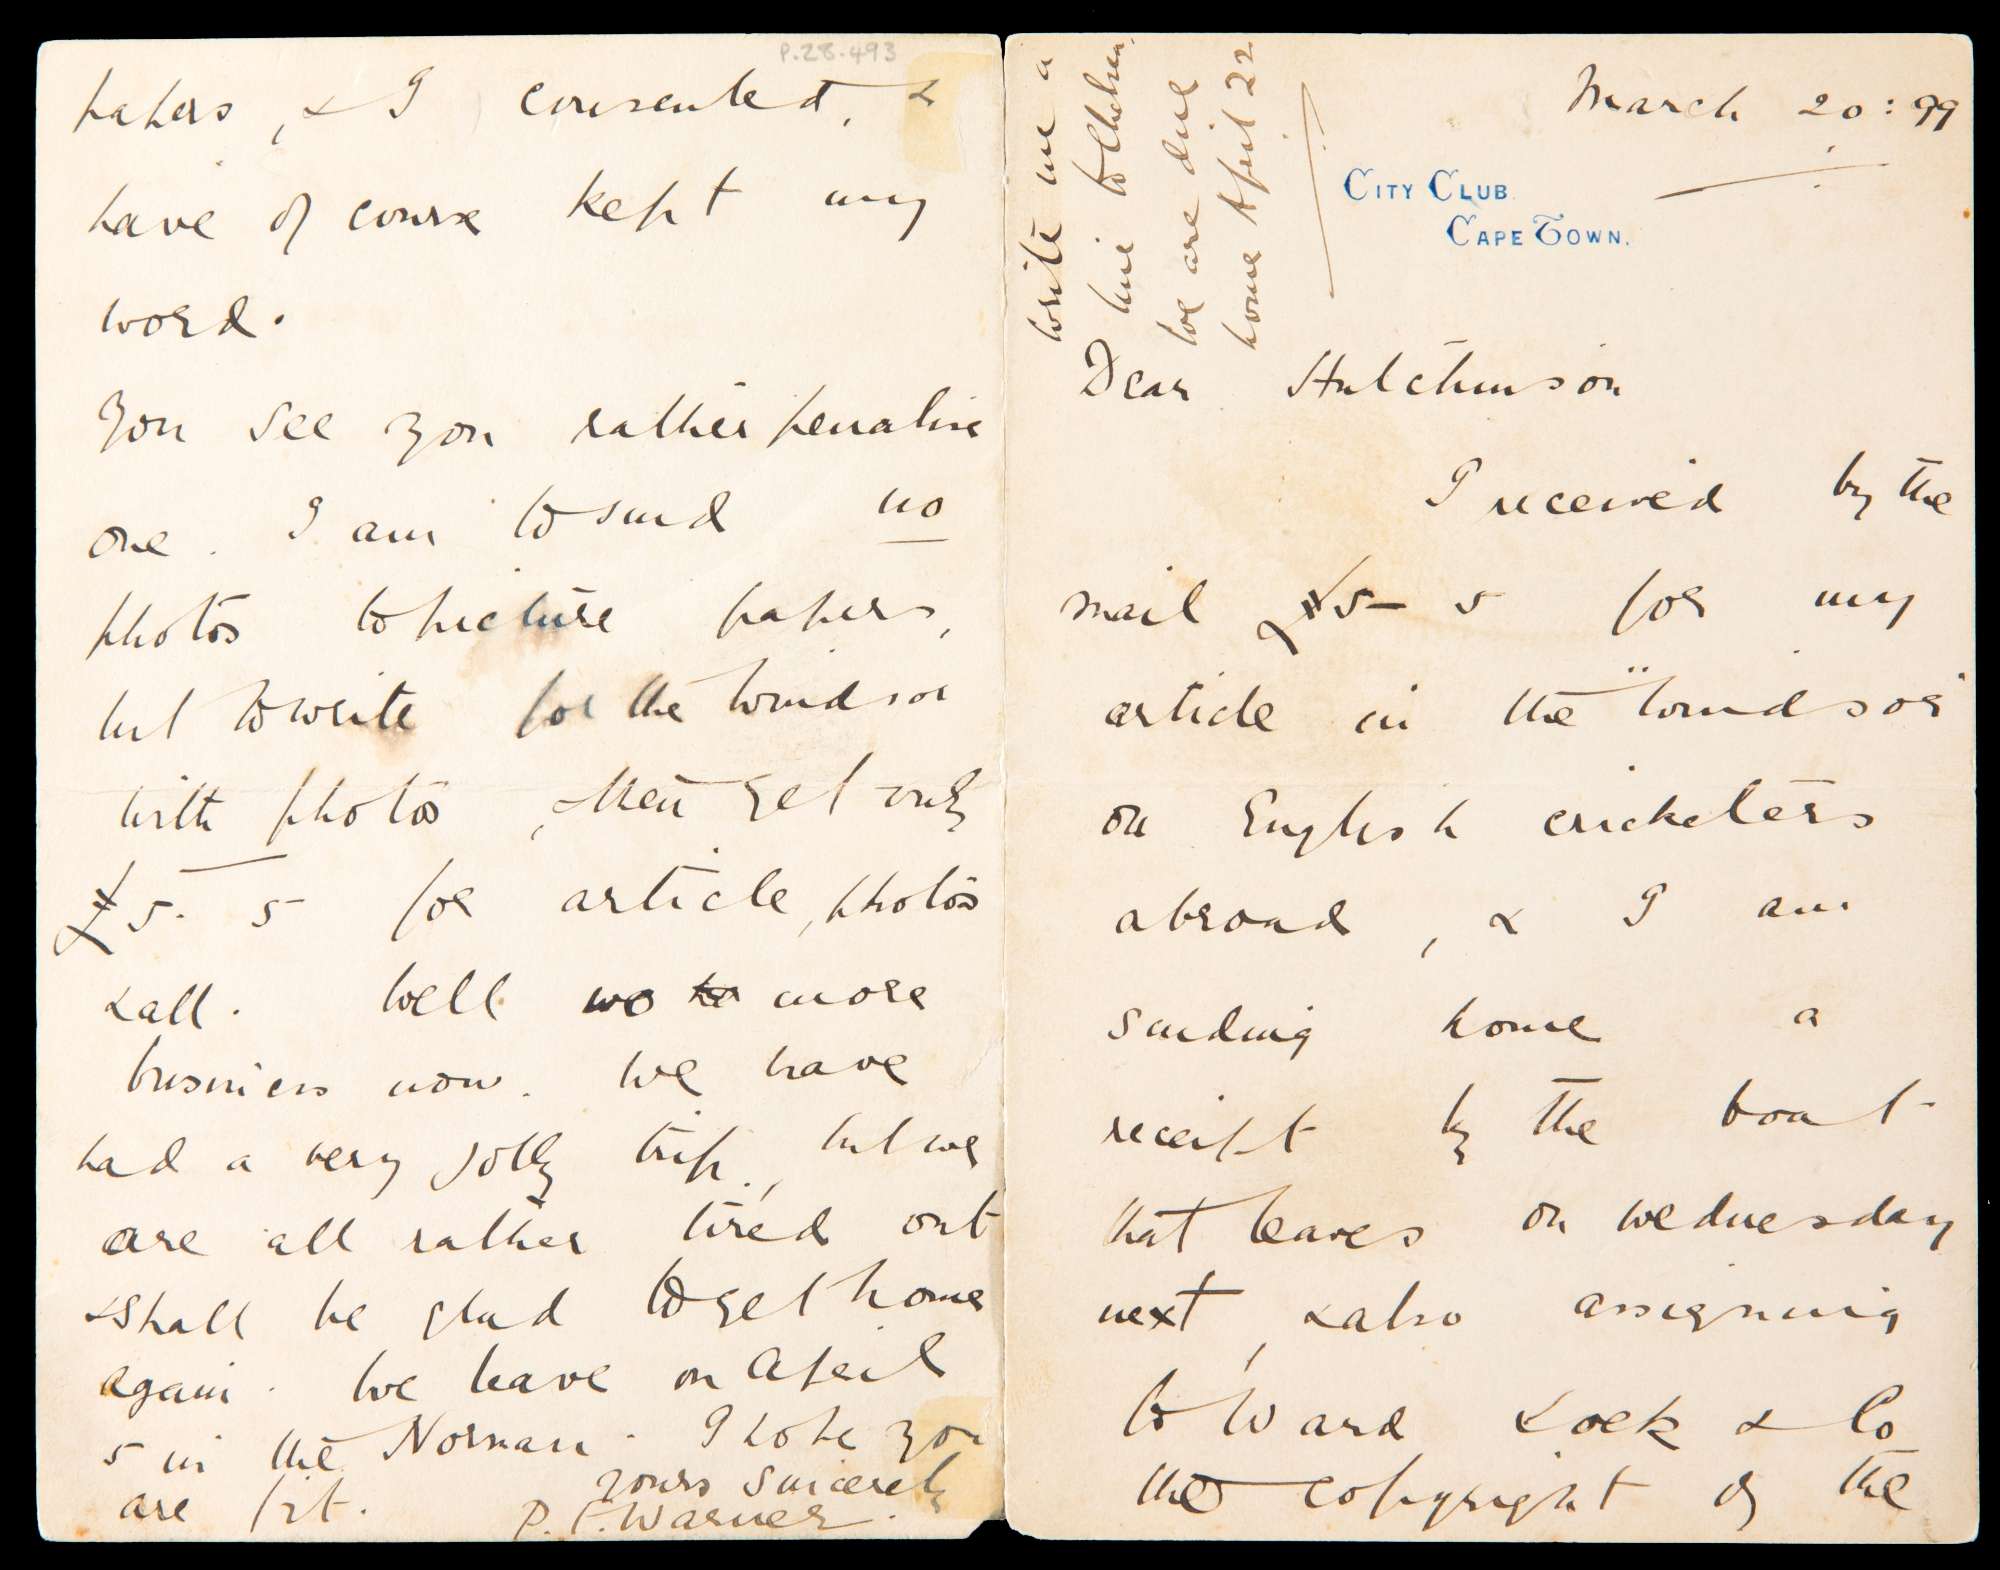 March 20: 99
CITY CLUB.
CAPE TOWN.
write me a
line to Chelsea,
we are due
home April 22
Dear Hutchinson
I received by the
mail £5-5 for my
article in the "Windsor"
on English cricketers
abroad, & I am
sending home a
receipt by the boat
that leaves on Wednesday
next, & also assigning
to Ward Lock & Co
the copyright of the
P.28.493
papers, & I consented, &
have of course kept my
word.
You see you rather penalise
one. I am to send no
photos to picture papers,
but to write for the Windsor
with photos, & then get only
£5-5 for article, photos
& all. Well no more
business now. We have
had a very jolly trip, but we
are all rather tired out
& shall be glad to get home
again. We leave on April
5 in the Norman. I hope you
are fit. Yours Sincerely
P. F. Warner.